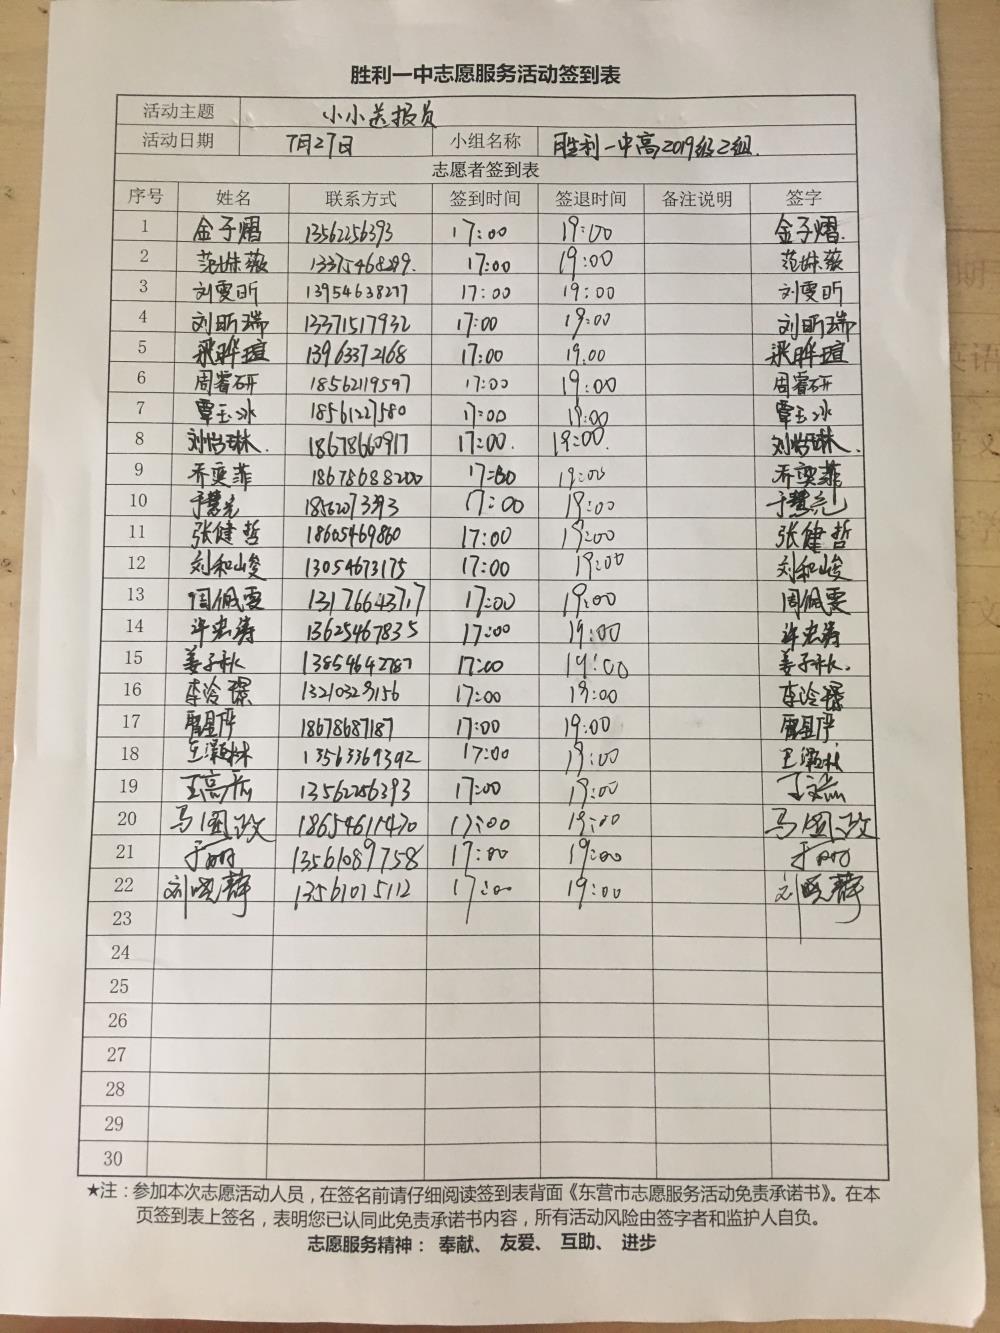 胜利一中志愿服务活动签到表
活动主题 小小送报员
活动日期 7月27日 小组名称 胜利一中高2019级2组.
志愿者签到表
序号 姓名 联系方式 签到时间 签退时间 备注说明 签字
1 金子熠 13562256393 17:00 19:00 金子熠.
2 范姝薇 13375468299. 17:00 19:00 范姝薇
3 刘雯昕 13954638277 17:00 19:00 刘雯昕
4 刘昕瑞 13371517932 17:00 19:00 刘昕瑞
5 梁晔瑄 13963372168 17:00 19:00 梁晔瑄
6 周睿研 18562119597 17:00 19:00 周睿研
7 覃玉冰 18561227580 17:00 19:00 覃玉冰
8 刘怡琳. 18678660917 17:00. 19:00. 刘怡琳.
9 乔奕菲 18678688200 17:00 19:00 乔奕菲
10 于慧元 18562073393 17:00 19:00 于慧元
11 张健哲 18605469860 17:00 19:00 张健哲
12 刘和峻 13054673175 17:00 19:00 刘和峻
13 周佩雯 13176643717 17:00 19:00 周佩雯
14 许宏涛 13625467835 17:00 19:00 许宏涛
15 姜子秋 13854642787 17:00 19:00 姜子秋.
16 李泠璟 13210329156 17:00 19:00 李泠璟
17 18678687187 17:00 19:00
18 王灏林 13563369392 17:00 19:00 王灏林
19 13562256393 17:00 19:00
20 马国政 18654611470 17:00 19:00 马国政
21 于丽 13561089758 17:00 19:00 于丽
22 刘晓静 13561015112 17:00 19:00 刘晓静
23
24
25
26
27
28
29
30
★注：参加本次志愿活动人员，在签名前请仔细阅读签到表背面《东营市志愿服务活动免责承诺书》。在本
页签到表上签名，表明您已认同此免责承诺书内容，所有活动风险由签字者和监护人自负。
志愿服务精神： 奉献、 友爱、 互助、 进步